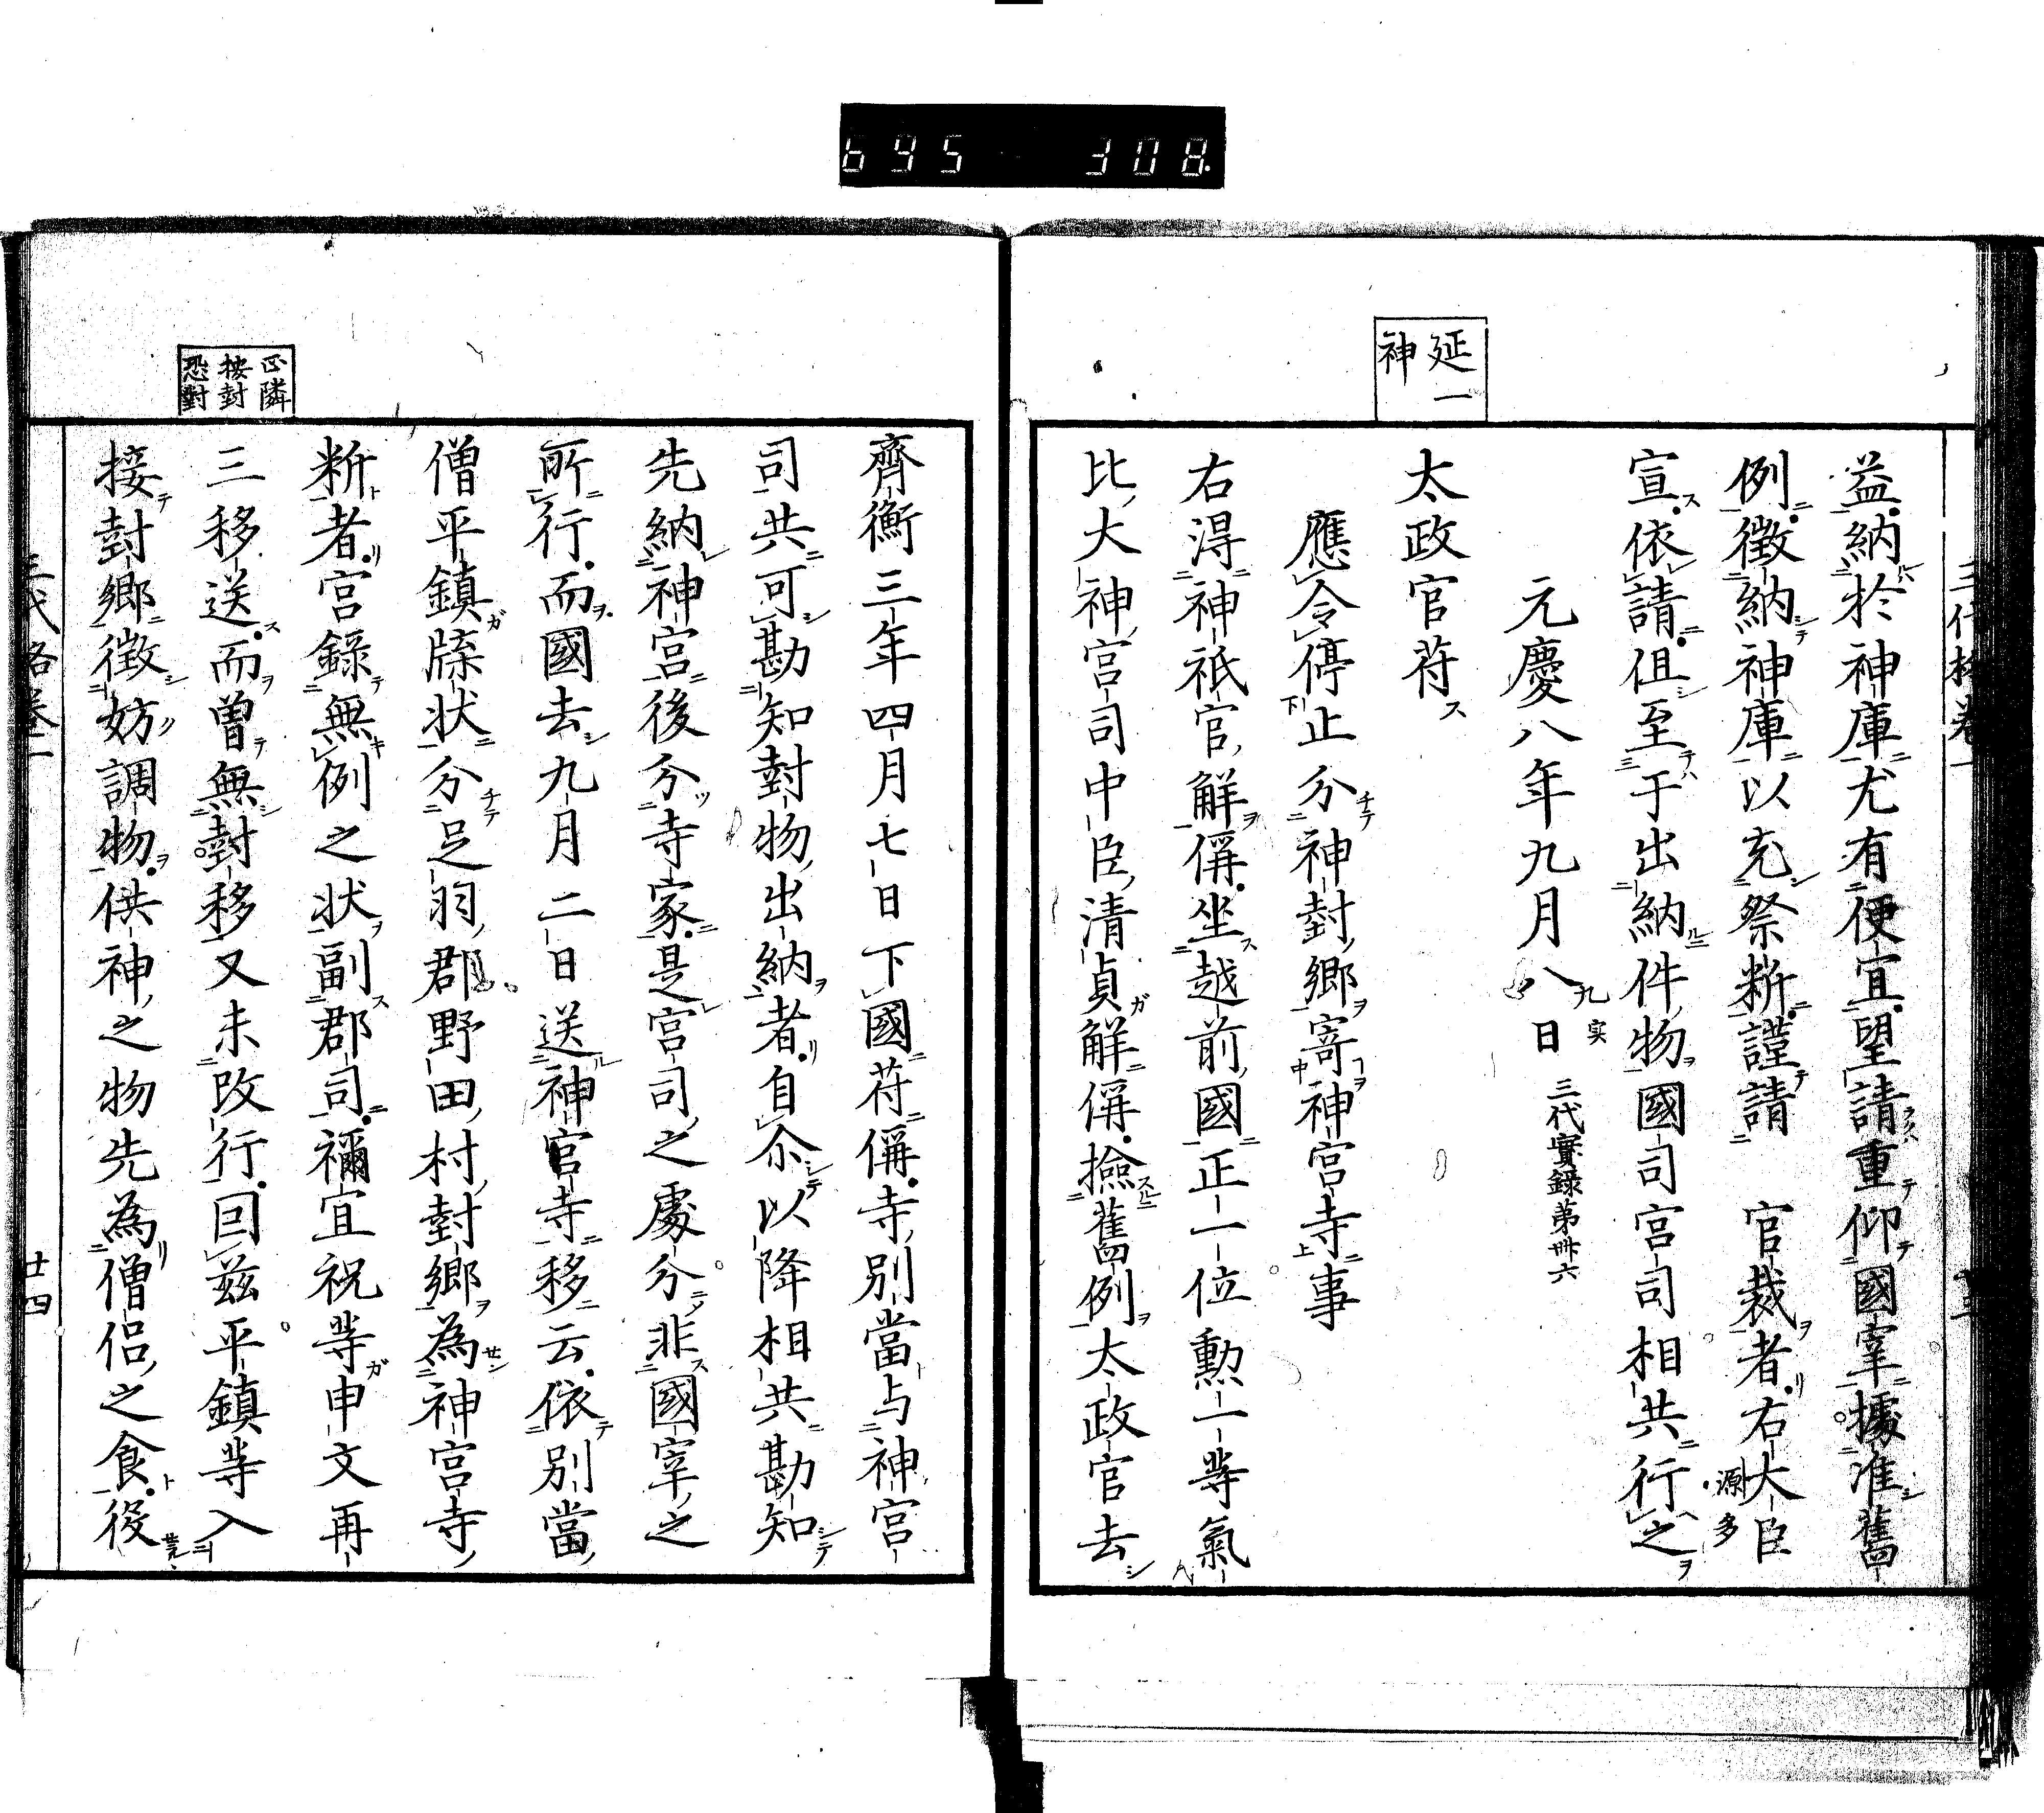 695 308
延一
神
益納於神庫尤有便宜望請重仰國宰據准舊
例徴納神庫以充祭析謹請 官裁者右大臣
源多
宣依請但至于出納件物國司宮司相共行之
元慶八年九月八日 三代實録第卌六
九実
太政官苻
應令停止分神封郷寄神宮寺事
右得神祇官解偁坐越前國正一位勲一等氣
比大神宮司中臣清貞解偁撿舊例太政官去
正隣
按封
恐對
齊衡三年四月七日下國苻偁寺別當与神宮
司共可勘知封物出納者自尒以降相共勘知
先納神宮後分寺家是宮司之處分非國宰之
所行而國去九月二日送神宮寺移云依別當
僧平鎮牒状分足羽郡野田村封郷為神宮寺
析者宮録無例之状副郡司禰宜祝等申文再
三移送而曽無封移又未改行囙茲平鎮等入
接封郷徴妨調物供神之物先為僧侣之食役
三代格卷一
廿四